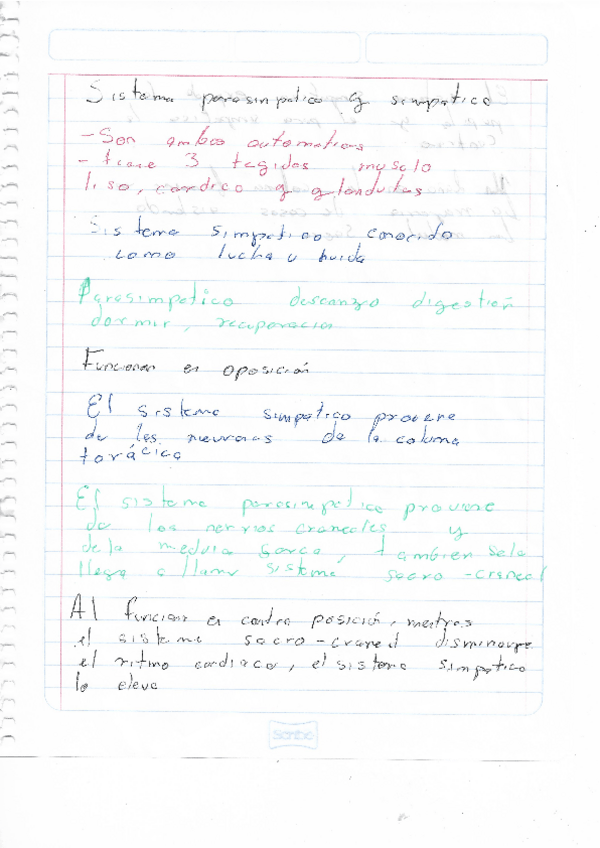 Sistema parasimpatico y simpatico
- Son ambos automaticos
- tiene 3 tegidos musculo
liso, cardico y glandulas
Sistema simpatico conocido
como lucha u huida
Parasimpatico descanzo digestión
dormir, recuperacion
Funcionan en oposición
El sistema simpatico proviene
de las neuronas de la columna
torácica
El sistema parasimpatico proviene
de los nervios craneales y
de la medula sacra, tambien se le
llega a llamar sistema sacro-craneal
Al funcionar en contra posición, mientras
el sistema sacro-craneal disminuye
el ritmo cardiaco, el sistema simpatico
lo eleva
scribe